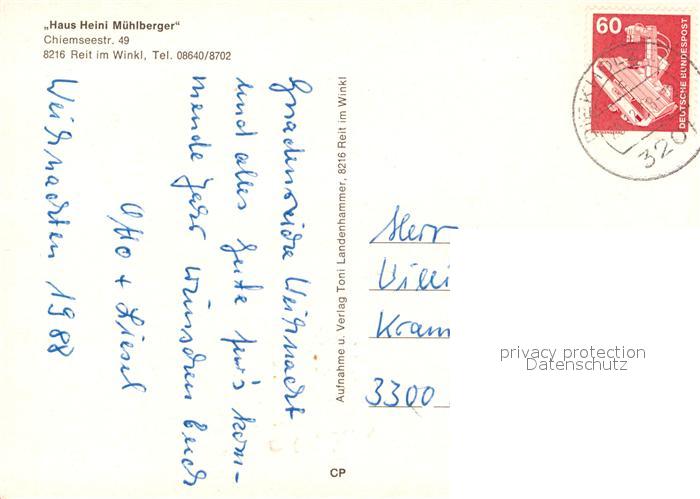 „Haus Heini Mühlberger“
Chiemseestr. 49
8216 Reit im Winkl, Tel. 08640/8702
Gnadenreiche Weihnacht
und alles Gute für's kom-
mende Jahr wünschen Euch
Otto + Liesel
Weihnachten 1988
Aufnahme u. Verlag Toni Landenhammer, 8216 Reit im Winkl
CP
60
DEUTSCHE BUNDESPOST
320
Herr
Willi
Kram
3300
privacy protection
Datenschutz